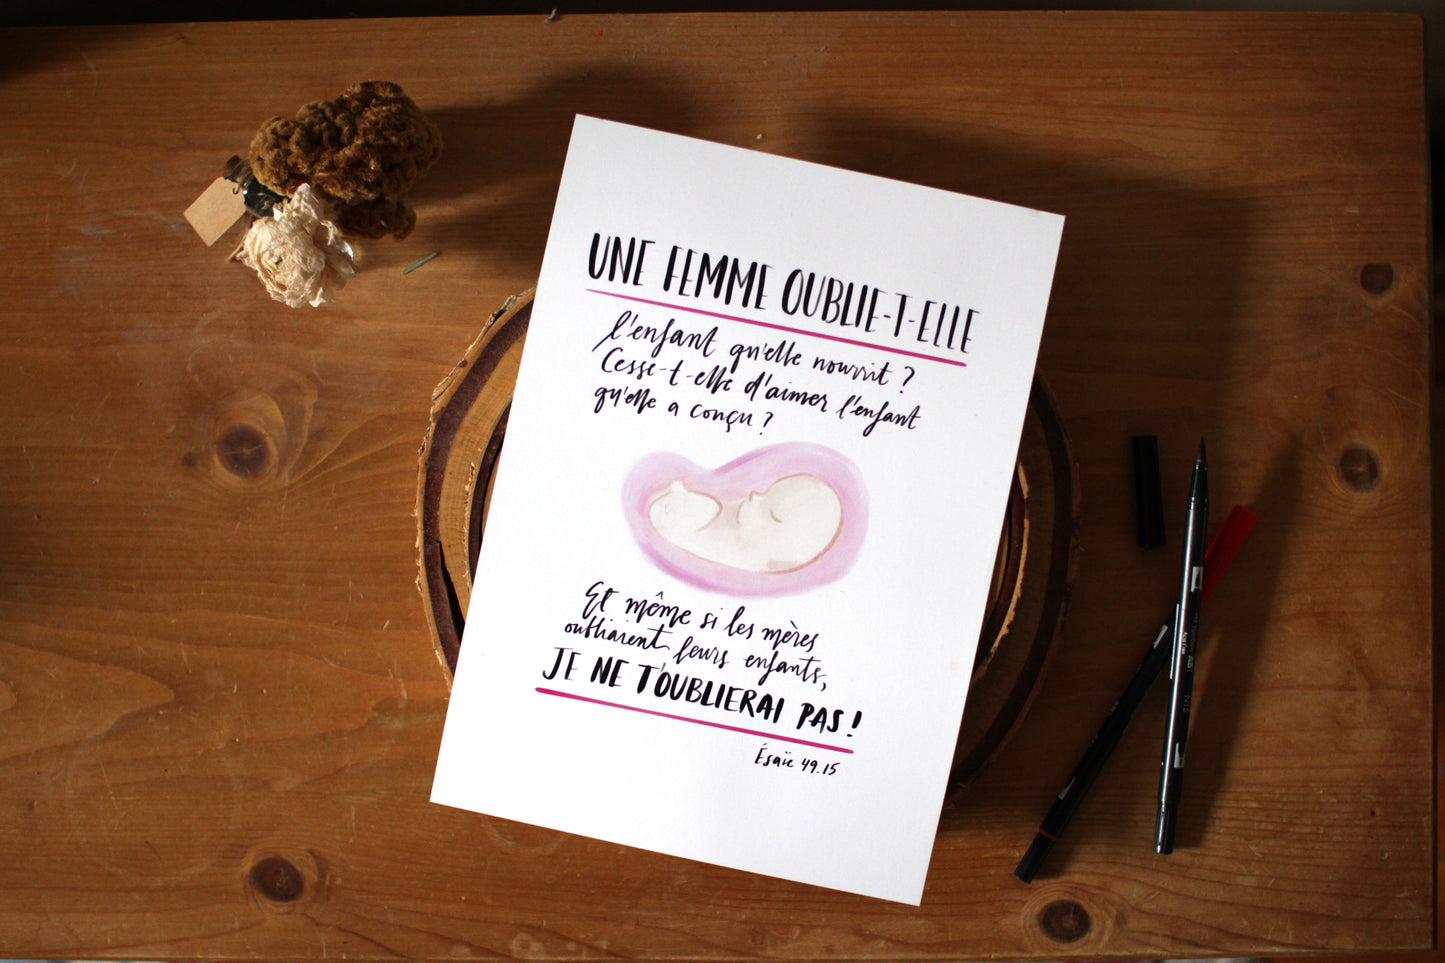 UNE FEMME OUBLIE-T-ELLE
l'enfant qu'elle nourrit ?
Cesse-t-elle d'aimer l'enfant
qu'elle a conçu ?
Et même si les mères
oubliaient leurs enfants,
JE NE T'OUBLIERAI PAS !
Ésaïe 49.15
N15